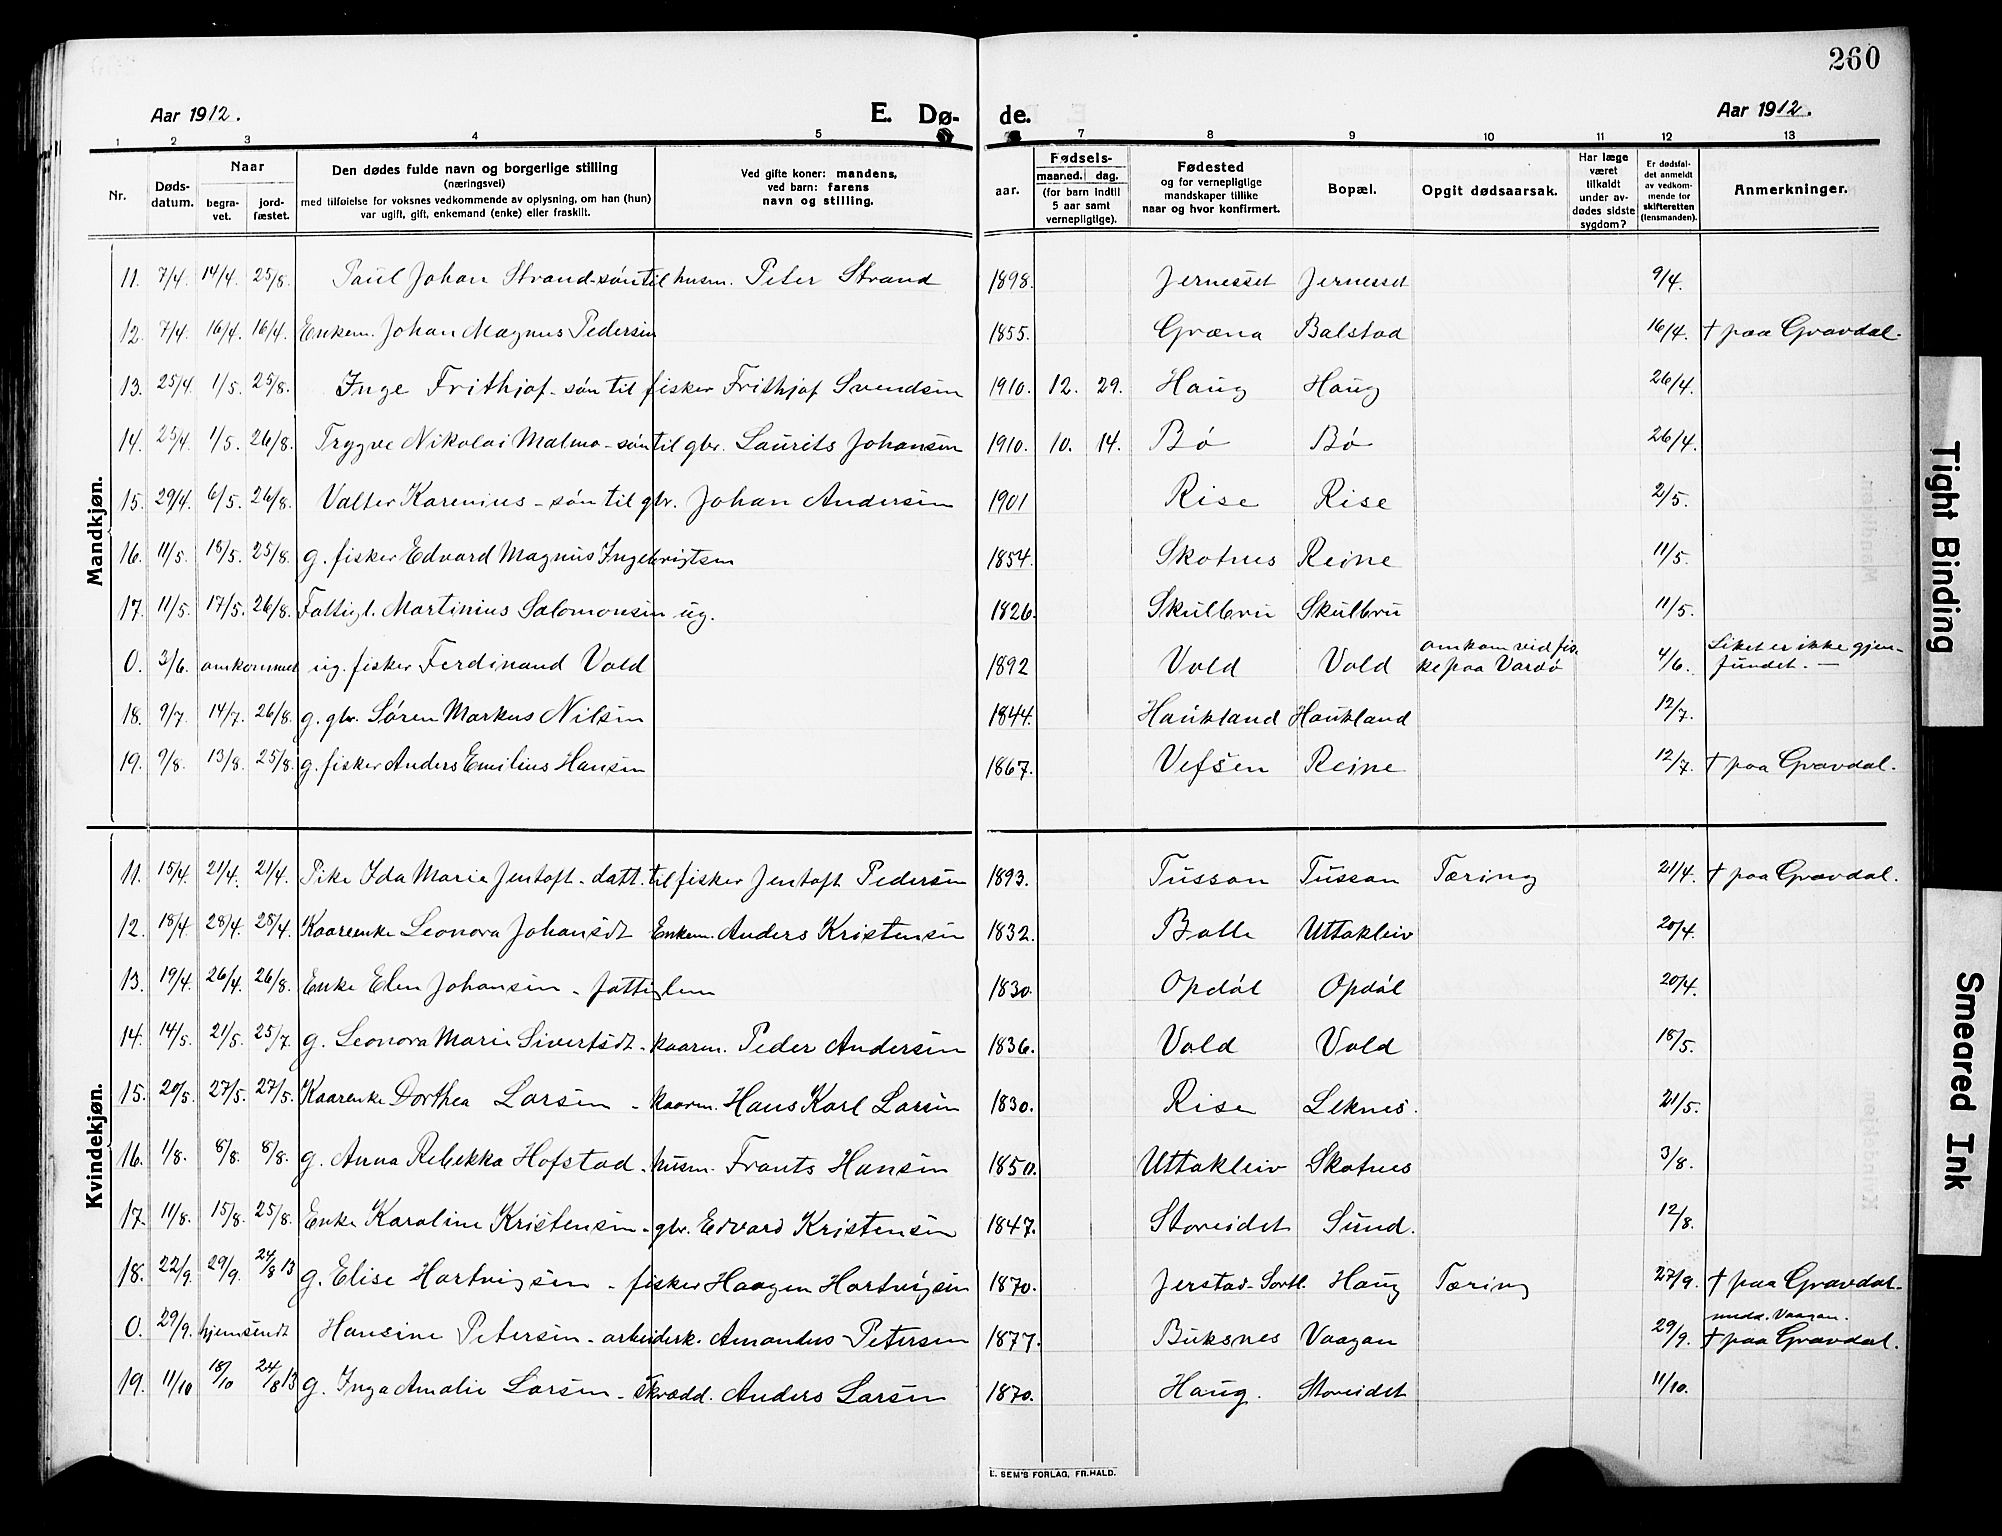 260
Aar 1912. E. Dø- de. Aar 1912.
1 2 3 4 5 7 8 9 10 11 12 13
Nr. Døds-datum. Naar begra-vet. jord-fæstet. Den dødes fulde navn og borgerlige stilling (næringsvei) med tilføielse for voksnes vedkommende av oplysning, om han (hun) var ugift, gift, enkemand (enke) eller fraskilt. Ved gifte koner: mandens, ved barn: farens navn og stilling. aar. Fødsels- maaned. dag. (for barn indtil 5 aar samt vernepligtige). Fødested og for vernepligtige mandskaper tillike naar og hvor konfirmert. Bopæl. Opgit dødsaarsak. Har læge været tilkaldt under av-dødes sidste sygdom? Er dødsfal-det anmeldt av vedkom-mende for skifteretten (lensmanden). Anmerkninger.
Mandkjøn.
11. 7/4. 14/4. 25/8. Paul Johan Strand - søn til husm. Peter Strand 1898. Jernesset Jernesset 9/4.
12. 7/4. 16/4. 16/4. Enkem. Johan Magnus Pedersen 1855. Græna Balstad 16/4. † paa Gravdal.
13. 25/4. 1/5. 25/8. Inge Frithjof - søn til fisker Frithjof Svendsen 1910. 12. 29. Haug Haug 26/4.
14. 25/4. 1/5. 26/8. Trygve Nikolai Malmo - søn til gbr. Laurits Johansen 1910. 10. 14. Bø Bø 26/4.
15. 29/4. 6/5. 26/8. Valter Karenius - søn til gbr. Johan Andersen 1901 Rise Rise 2/5.
16. 11/5. 18/5. 25/8. g. fisker Edvard Magnus Ingebrigtsen 1854. Skotnes Reine 11/5.
17. 11/5. 17/5. 26/8. Fattigl. Martinius Salomonsen ug. 1826. Skulbru Skulbru 11/5.
0. 3/6. omkommet ug. fisker Ferdinand Vold 1892 Vold Vold omkom vid fis-kepaa Vardø 4/6. Liket er ikke gjen-fundet. —
18. 9/7. 14/7. 26/8. g. gbr. Søren Markus Nilsen 1844. Haukland Haukland 12/7.
19. 9/8. 13/8. 25/8. g. fisker Anders Emilius Hansen 1867. Vefsen Reine 12/7. † paa Gravdal.
Kvindekjøn.
11. 15/4. 21/4. 21/4. Pike Ida Marie Jentoft - datt. til fisker Jentoft Pedersen 1893. Tussan Tussan Tæring 21/4. † paa Gravdal.
12. 18/4. 28/4. 28/4. Kaareenke Leonora Johansdt Enkem. Anders Kristensen 1832. Balle Uttakleiv 20/4.
13. 19/4. 26/4. 26/8. Enke Elen Johansen - fattiglem 1830. Opdøl Opdøl 20/4.
14. 14/5. 21/5. 25/7. g. Leonora Marie Sivertsdt - kaarm. Peder Andersen 1836. Vold Vold 18/5.
15. 20/5. 27/5. 27/5. Kaarenke Dorthea Larsen - kaarm. Hans Karl Larsen 1830. Rise Leknes. 21/5.
16. 1/8. 8/8. 8/8. g. Anna Rebekka Hofstad - husm. Frants Hansen 1850. Uttakleiv Skotnes 3/8.
17. 11/8. 15/8. 25/8. Enke Karoline Kristensen - gbr. Edvard Kristensen 1847. Storeidet Sund. 12/8.
18. 22/9. 29/9. 24/8 13 g. Elise Hartvigsen - fisker Haagen Hartvigsen 1870. Jerstad - Sortl. Haug Tæring 27/9. † paa Gravdal.
0. 29/9. hjemsendt Hansine Petersen - arbeiderk. Amandus Petersen 1877. Buksnes Vaagan 29/9. medd. Vaagan. † paa Gravdal.
19. 11/10 18/10 24/8 13 g. Inga Amalie Larsen - skrædd. Anders Larsen 1870. Haug. Storeidet 11/10.
E. SEM'S FORLAG, FR.HALD.
Tight Binding
Smeared Ink